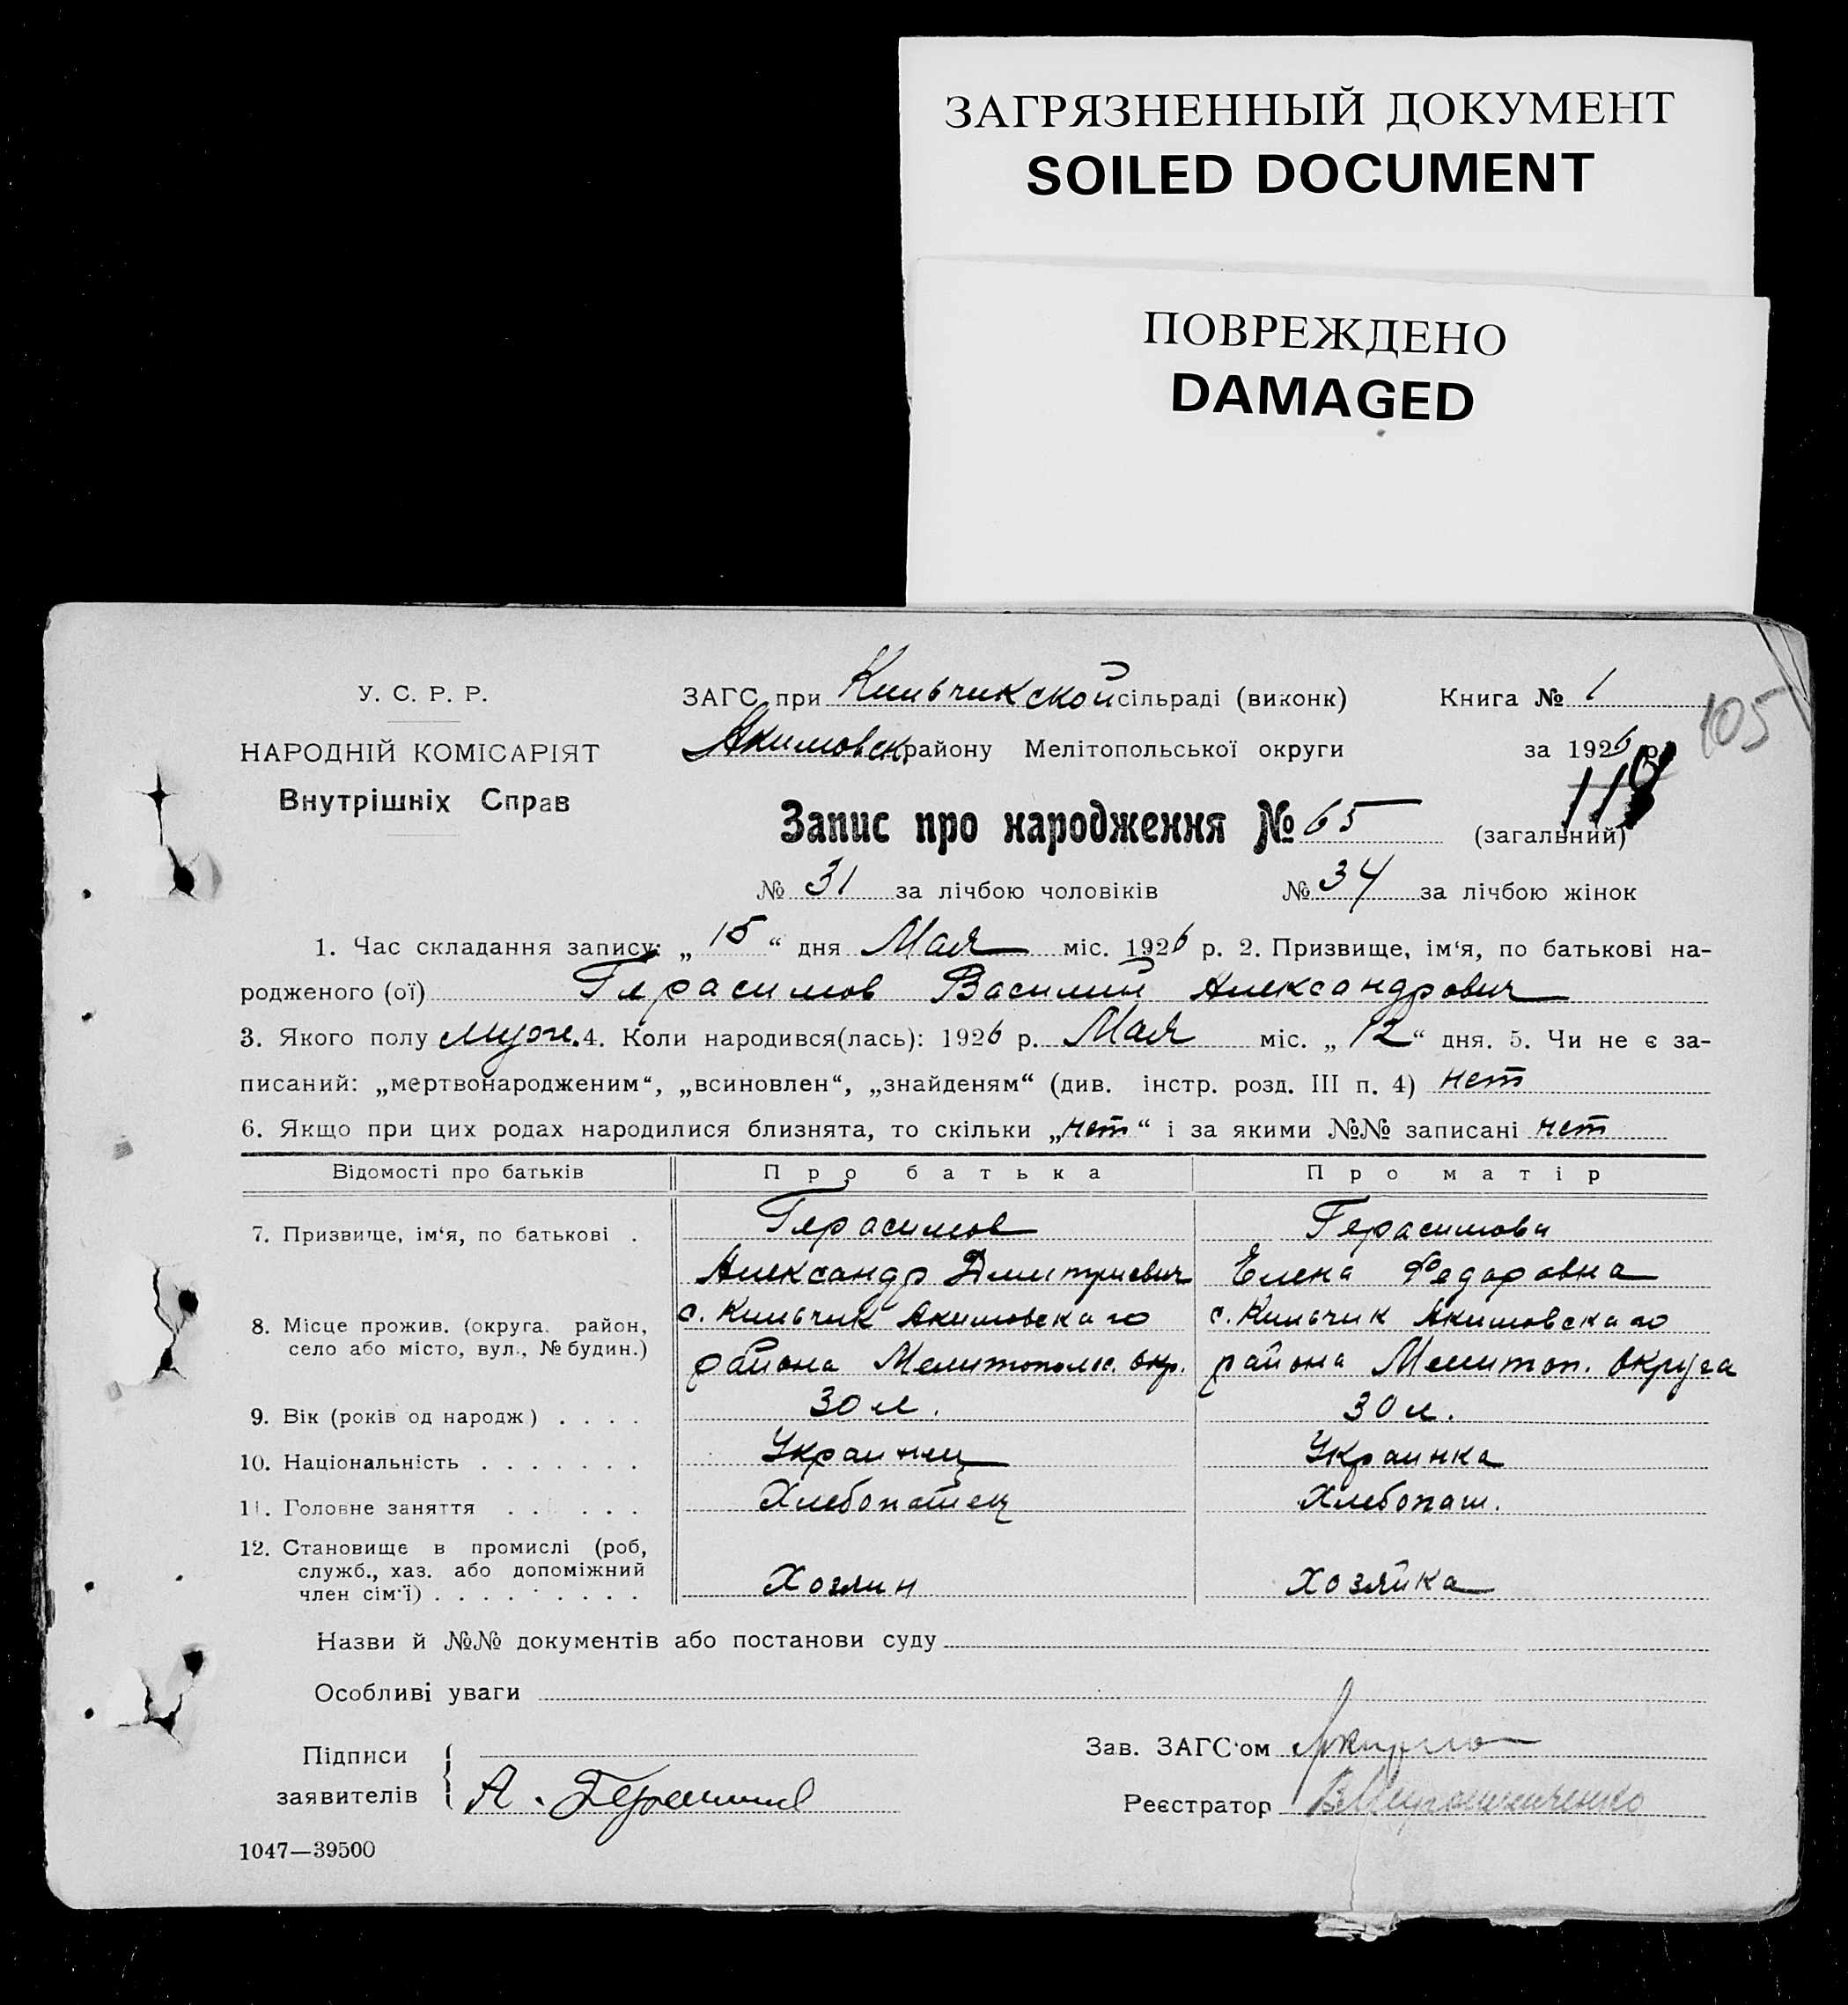 ЗАГРЯЗНЕННЫЙ ДОКУМЕНТ
SOILED DOCUMENT
ПОВРЕЖДЕНО
DAMAGED
У. С. Р. Р.
НАРОДНІЙ КОМІСАРІЯТ
Внутрішніх Справ
ЗАГС при Кильчикской сільраді (виконк)
Акимовск. району Мелітопольської округи
Книга № 1
за 1926 р.
105
Запис про народження № 65 (загальний)
№ 31 за лічбою чоловіків № 34 за лічбою жінок
1. Час складання запису: „ 15 “ дня Мая міс. 1926 р. 2. Призвище, ім‘я, по батькові на-
родженого (ої) Герасимов Василий Александрович
3. Якого полу муж. 4. Коли народився(лась): 1926 р. Мая міс. „ 12 “ дня. 5. Чи не є за-
писаний: „мертвонародженим“, „всиновлен“, „знайденям“ (див. інстр. розд. III п. 4) нет
6. Якщо при цих родах народилися близнята, то скільки „нет“ і за якими №№ записані нет
Відомості про батьків Про батька Про матір
7. Призвище, ім‘я, по батькові . Герасимов Герасимова
Александр Дмитриевич Елена Федоровна
8. Місце прожив. (округа. район, с. Кильчик Акимовскаго с. Кильчик Акимовскаго
село або місто, вул., № будин.) района Мелитополс. окр. района Мелитоп. округа
9. Вік (років од народж) . . . . 30 л. 30 л.
10. Національність . . . . . . . Украинец Украинка
11. Головне заняття . . . . . Хлебопашец Хлебопаш.
12. Становище в промислі (роб,
служб., хаз. або допоміжний
член сім‘ї) . . . . . . . . Хозяин Хозяйка
Назви й №№ документів або постанови суду
Особливі уваги
Підписи
заявителів
А. Герасимов
Зав. ЗАГС‘ом
Реєстратор
1047—39500